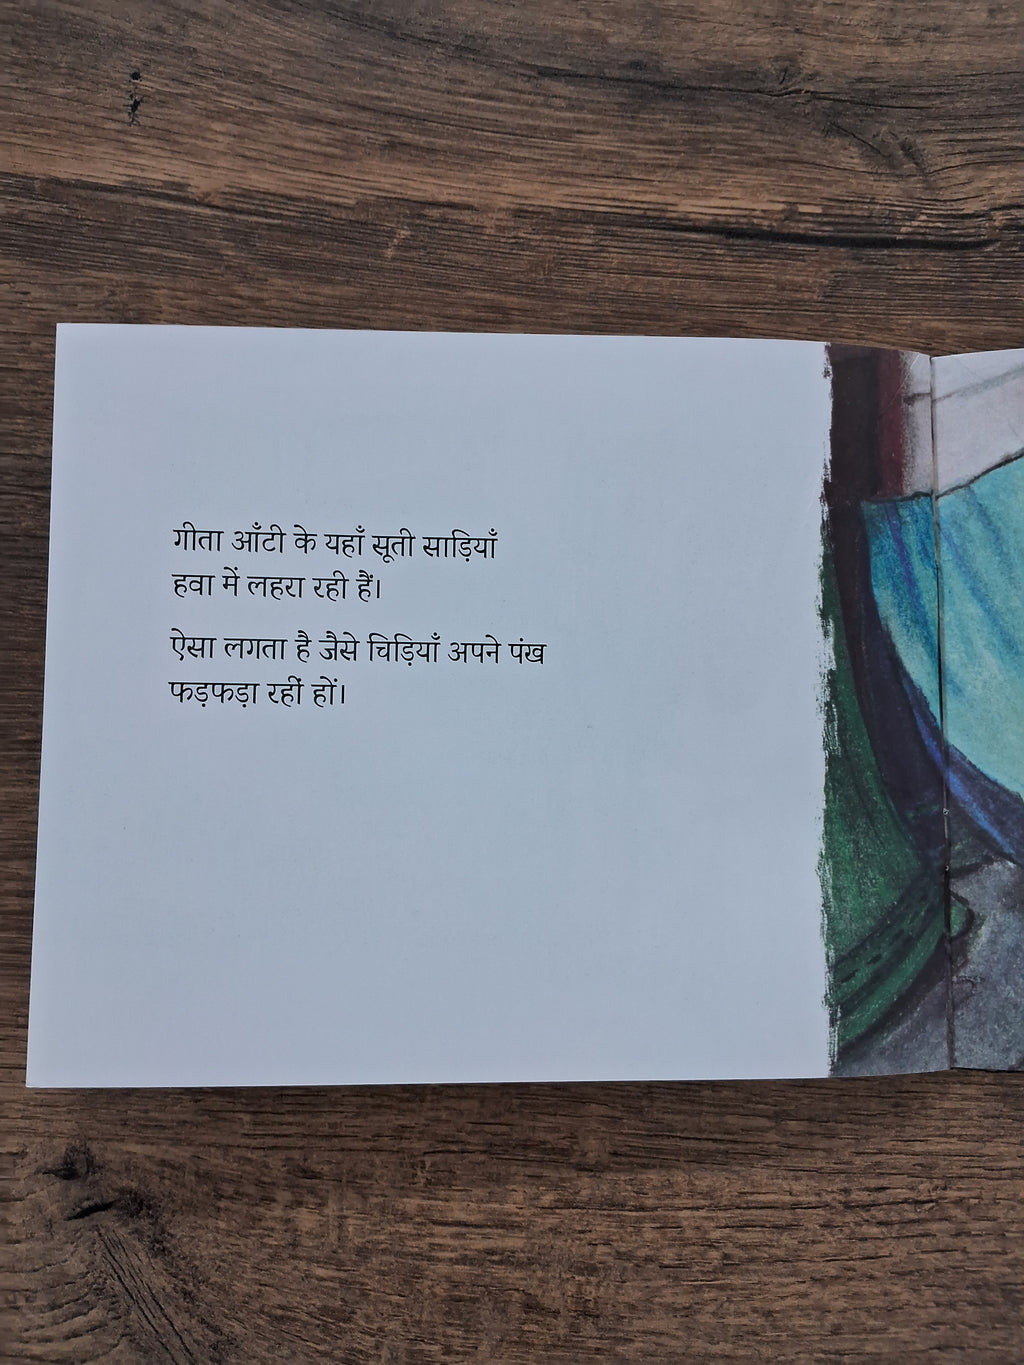 गीता आँटी के यहाँ सूती साड़ियाँ
हवा में लहरा रही हैं।
ऐसा लगता है जैसे चिड़ियाँ अपने पंख
फड़फड़ा रहीं हों।